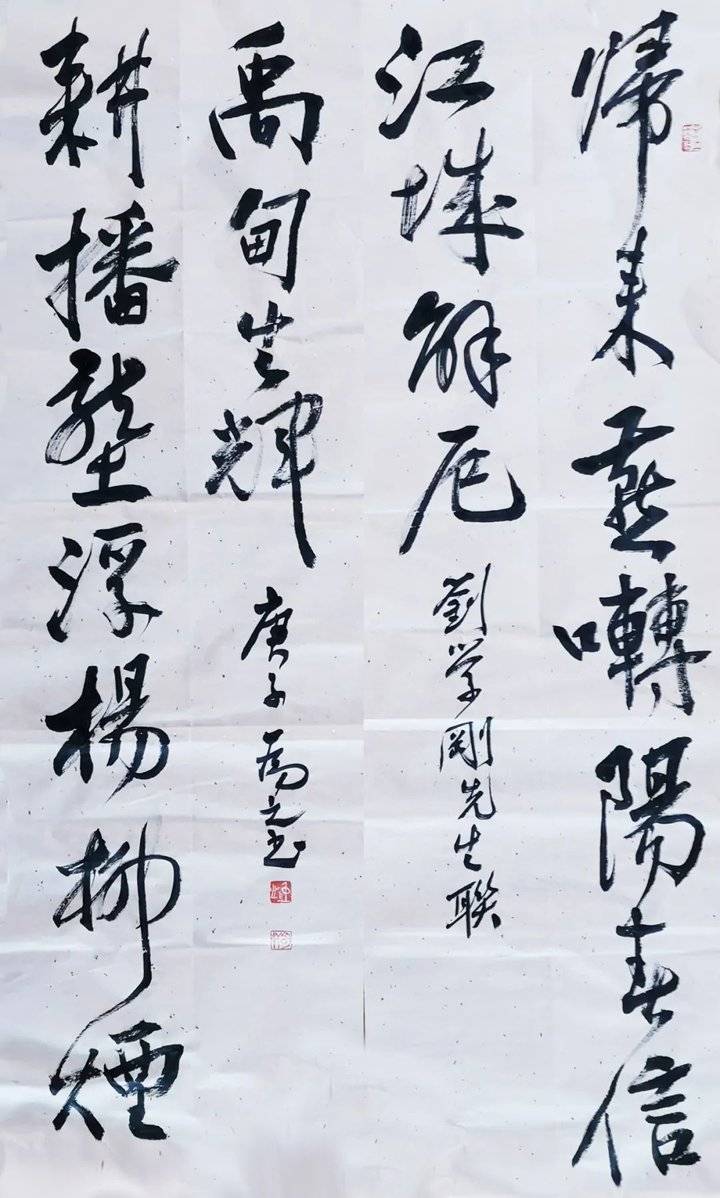 歸來燕囀陽春信
江城解厄
劉學剛先生聯
耕播壟浮楊柳煙
禹甸生輝
庚子